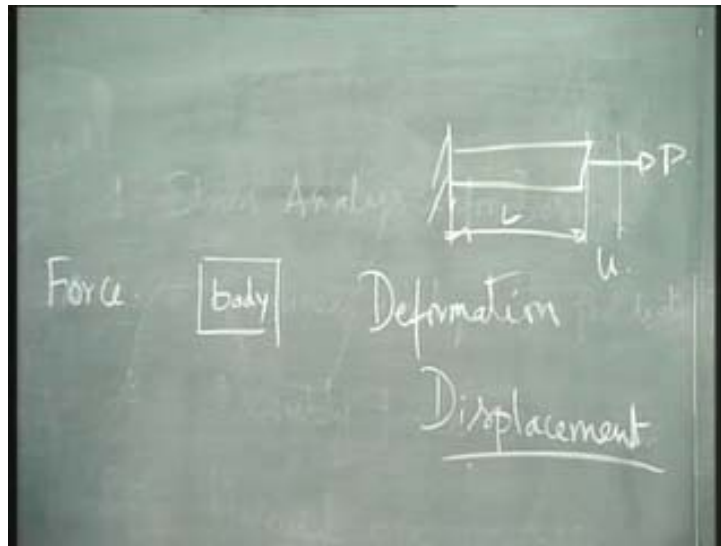 P.
L
u.
Force. body Deformation
Displacement